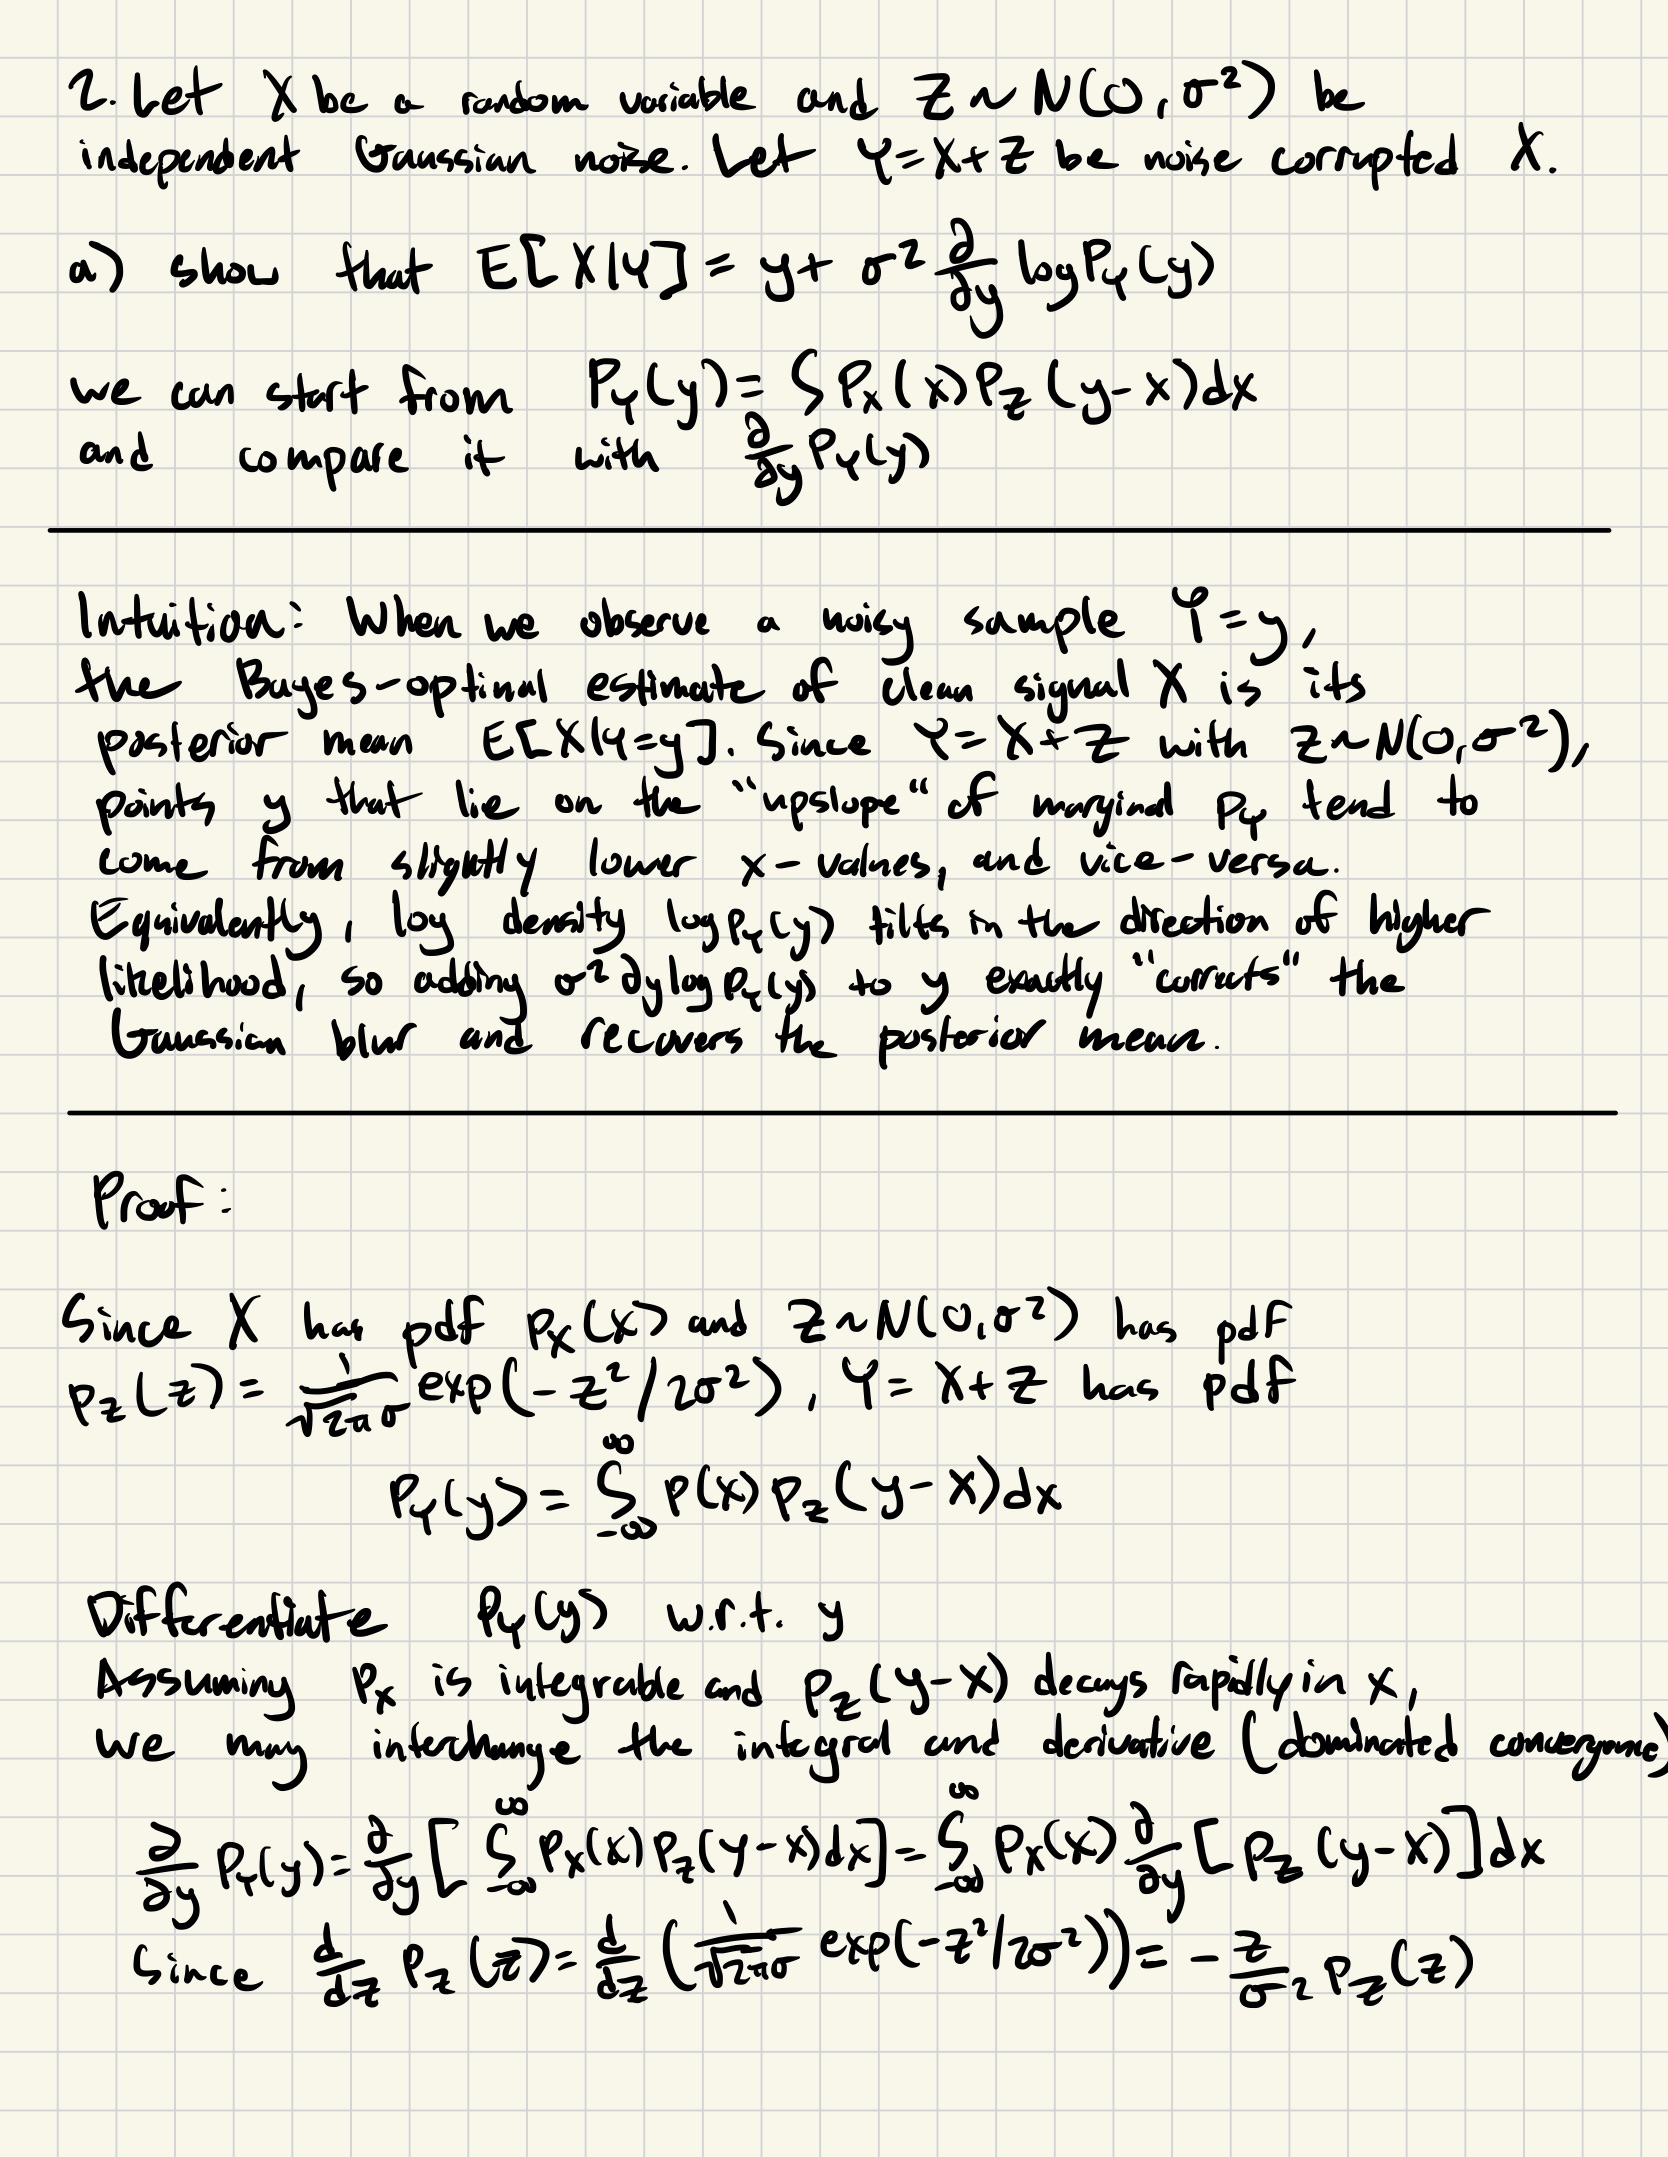 2. Let X be a random variable and Z ~ N(0, σ²) be
independent Gaussian noise. Let Y=X+Z be noise corrupted X.
a) show that E[X|Y] = y + σ² ∂/∂y log P_Y(y)
we can start from P_Y(y) = ∫ P_X(x) P_Z(y-x)dx
and compare it with ∂/∂y P_Y(y)
Intuition: When we observe a noisy sample Y=y,
the Bayes-optimal estimate of clean signal X is its
posterior mean E[X|Y=y]. Since Y=X+Z with Z~N(0,σ²),
points y that lie on the "upslope" of marginal p_Y tend to
come from slightly lower x-values, and vice-versa.
Equivalently, log density log p_Y(y) tilts in the direction of higher
likelihood, so adding σ² ∂y log p_Y(y) to y exactly "corrects" the
Gaussian blur and recovers the posterior mean.
Proof:
Since X has pdf p_X(x) and Z~N(0,σ²) has pdf
p_Z(z) = 1/(√2π σ) exp(-z²/2σ²), Y = X+Z has pdf
P_Y(y) = ∫_{-∞}^{∞} p(x) p_Z(y-x)dx
Differentiate P_Y(y) w.r.t. y
Assuming p_X is integrable and p_Z(y-x) decays rapidly in x,
we may interchange the integral and derivative (dominated convergence)
∂/∂y P_Y(y) = ∂/∂y [∫_{-∞}^{∞} P_X(x) P_Z(y-x)dx] = ∫_{-∞}^{∞} P_X(x) ∂/∂y [P_Z(y-x)]dx
Since d/dz P_Z(z) = d/dz (1/(√2πσ) exp(-z²/2σ²)) = - z/σ² P_Z(z)